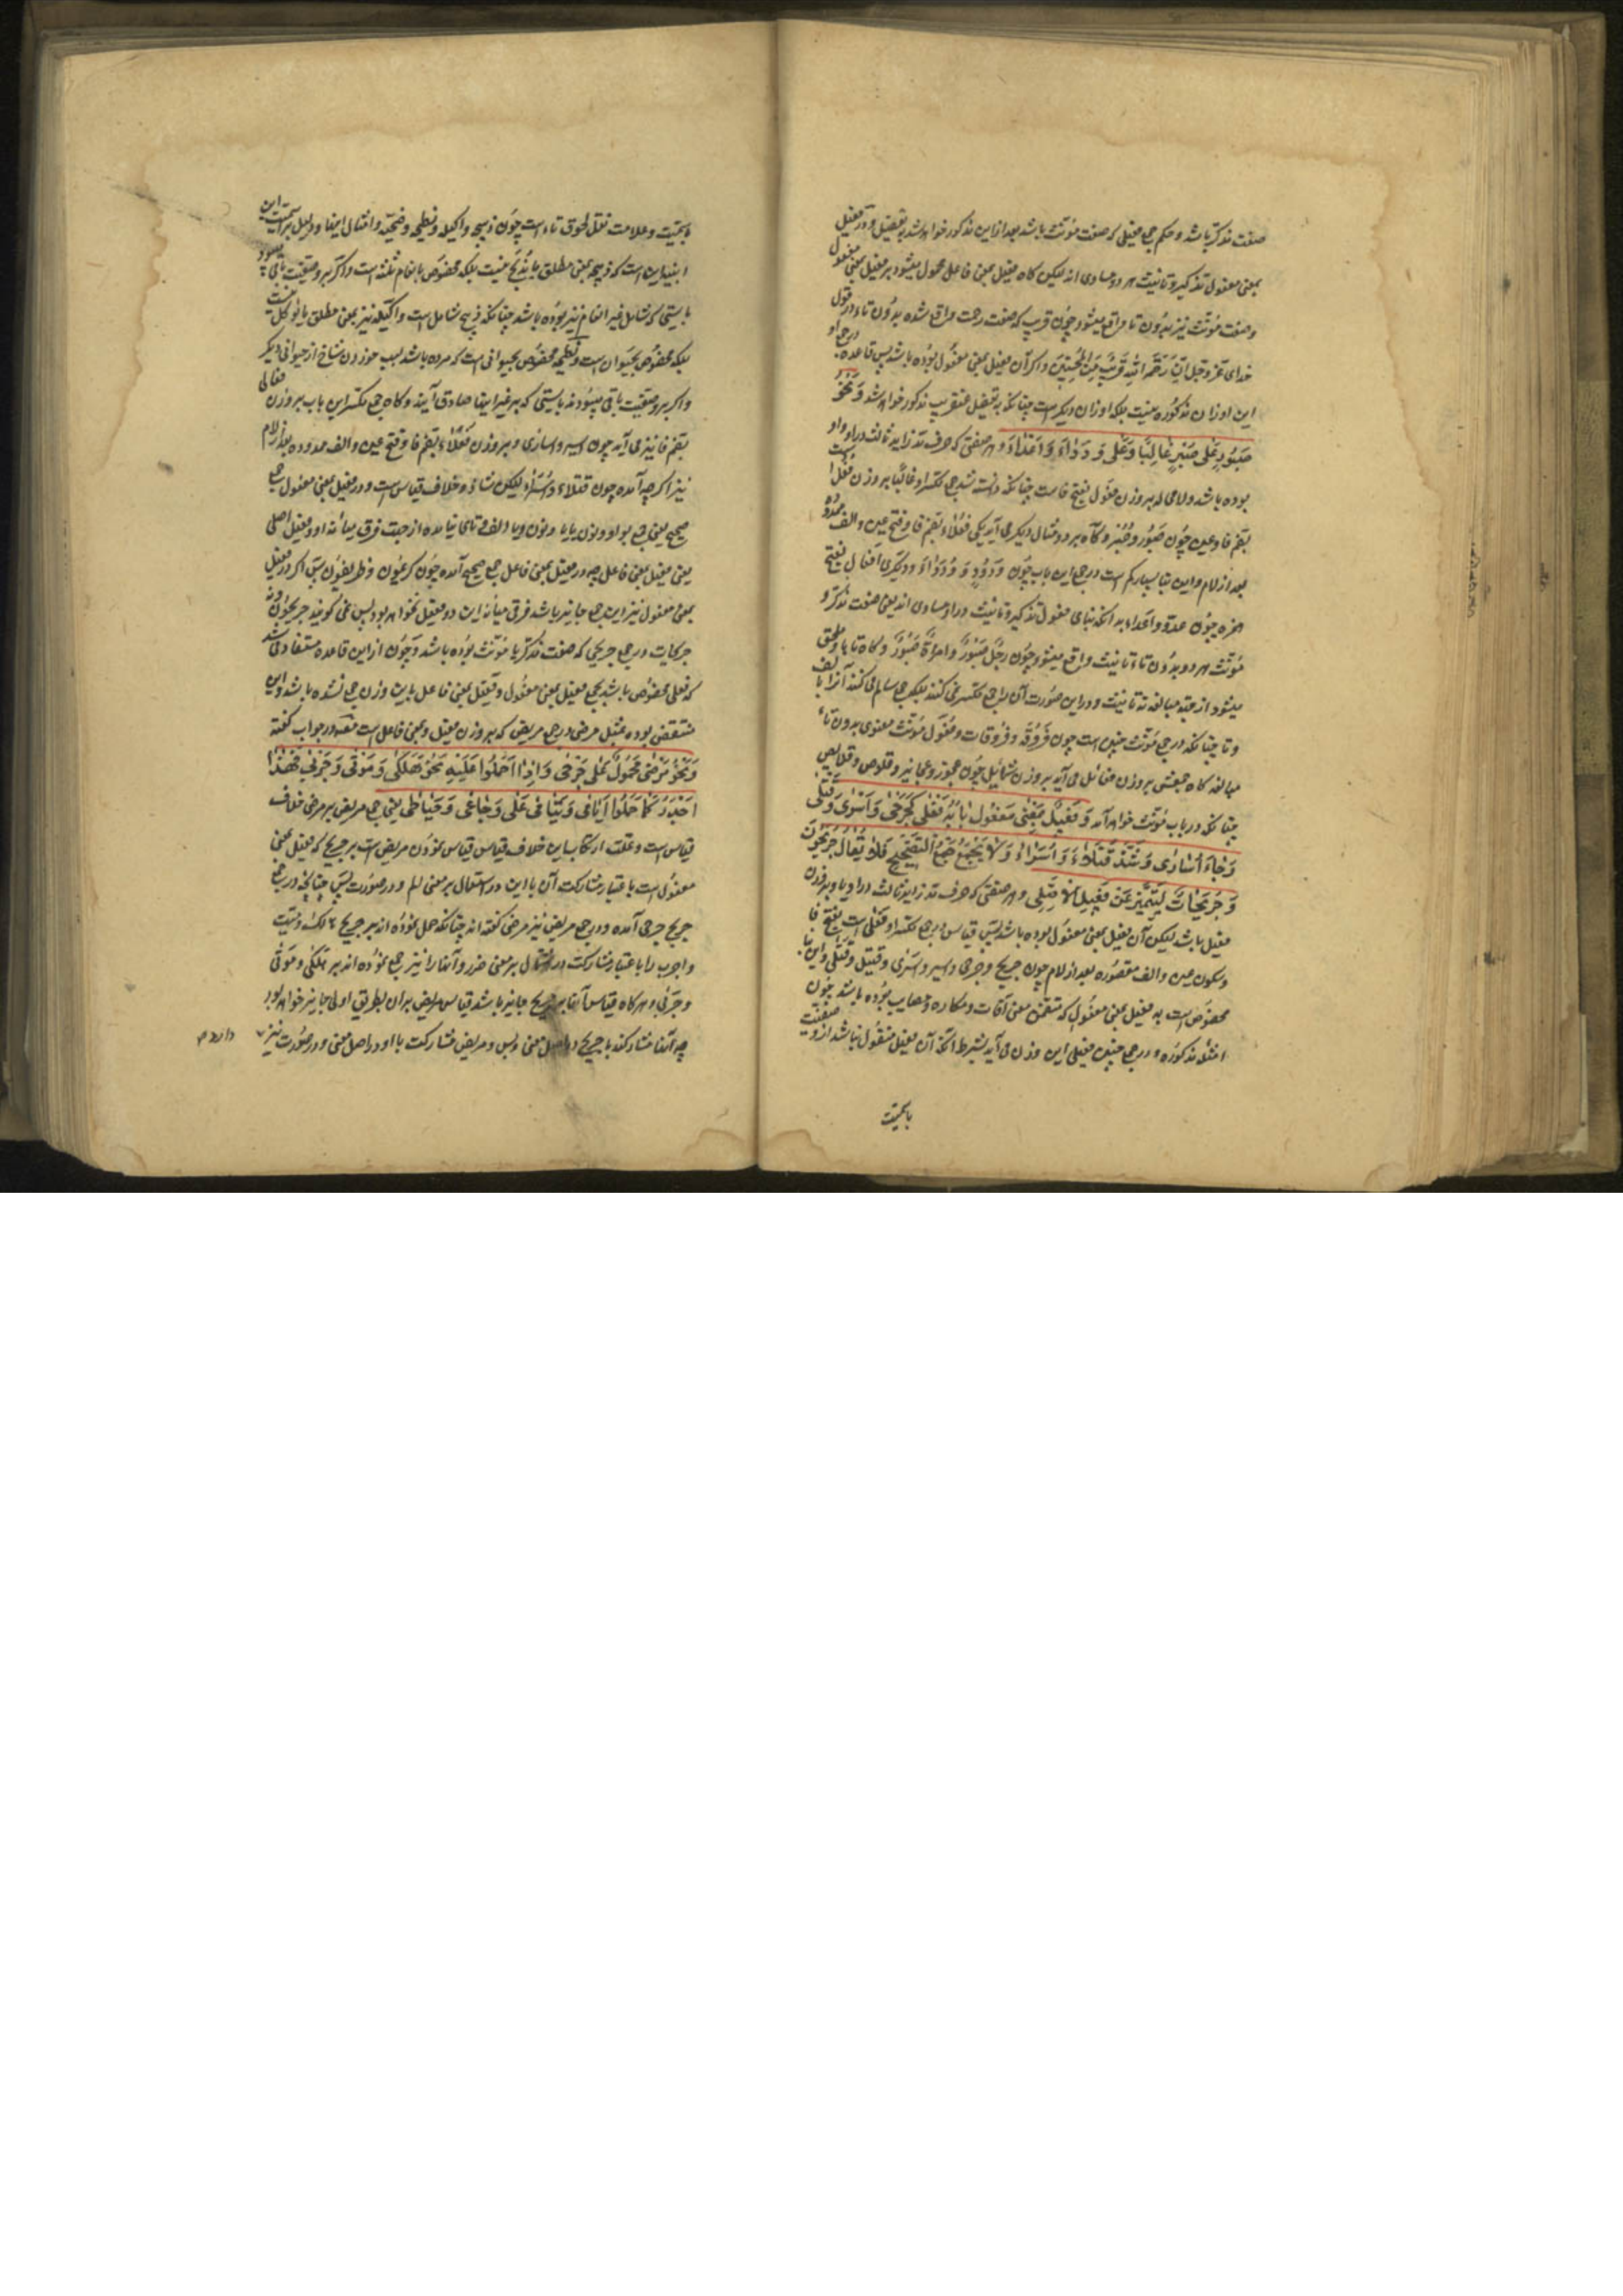 صفت مذکر باشد و حکم جمع فعیلی که صفت مؤنث باشد بعد از این مذکور خواهد شد به تفصیل و در فعیل
بمعنی مفعول تذکیر و تانیث هر دو مساوی اند لیکن کاه فعیل بمعنی فاعل محمول میشود بر فعیل بمعنی مفعول
و صفت مؤنث نیز بدون تا واقع میشود چون قریب که صفت رحمت واقع شده بدون تاء در قول
خدای عز و جل ان رحمة الله قریب من المحسنین و اکر آن فعیل بمعنی مفعول بوده باشد پس قاعده جمع او
این اوزان مذکوره نیست بلکه اوزان دیکر است چنانکه به تفصیل عنقریب مذکور خواهد شد وَنَحْوُ
صَبُورٍ عَلی صُبُرٍ غالِبًا وَعَلی وُدَداءَ وَاَعْداءَ و هر صفتی که حرف مد زاید ثالث در او واو
بوده باشد و لامی له بر وزن فعول بفتح فاست چنانکه دانسته شد جمع مکسر او غالبا بر وزن فعل است
بضم فا و عین چون صبور و صبر و کاه بر دو مثال دیکر می آید یکی فعلاء بضم فا و فتح عین و الف ممدوده
بعد از لام و این بنا بسیار کم است در جمع این باب چون ودود و ودداء و دیکری افعال بفتح
همزه چون عدو و اعداء بدانکه بنای فعول تذکیر و تانیث در او مساوی اند یعنی صفت مذکر و
مؤنث هر دو بدون تاء تانیث واقع میشود چون رجل صبور و امراة صبور و کاه تا باو ملحق
میشود از جهة مبالغه نه تانیث و در این صورت آن را جمع مکسر نمی کنند بلکه جمع سالم می کنند آنرا با الف
و تا چنانکه در جمع مؤنث چنین است چون فروقة و فروقات و فعول مؤنث معنوی بدون تاء
مبالغه کاه جمعش بر وزن فعائل می آید بر وزن شمائل چون عجوز و عجایز و قلوص و قلایص
چنانکه در باب مؤنث خواهد آمد وَفَعیلٌ بِمَعْنی مَفْعُولٍ بابُهُ فَعْلی کَجَرْحی وَاَسْری وَقَتْلی
وَجاءَ اُساری وَشَذَّ قُتَلاءُ وَاُسَراءُ وَلا یُجْمَعُ جَمْعَ التَّصْحیحِ فَلا یُقالُ جَریحُونَ
وَجَریحاتٌ لِیَتَمَیَّزَ عَنْ فَعیلِ الاَصْلِیِ و هر صفتی که حرف مد زاید ثالث در او یا و بر وزن
فعیل باشد لیکن آن فعیل بمعنی مفعول بوده باشد پس قیاس در جمع مکسر او فعلی است بفتح فا
و سکون عین و الف مقصوره بعد از لام چون جریح و جرحی و اسیر و اسری و قتیل و قتلی و این بنا
مخصوص است به فعیل بمعنی مفعول که متضمن معنی آفات و مکاره و مصایب بوده باشد چون
امثله مذکوره و در جمع چنین فعیلی این وزن می آید بشرط آنکه آن فعیل منقول نباشد از وصفیت
باسمیت
باسمیت و علامت نقل لحوق تاء است چون ذبیحه و اکیله و نطیحه و ضحیه و امثال اینها و دلیل بر اسمیت این
ابنیه این است که ذبیحه بمعنی مطلق ما یذبح نیست بلکه مخصوص بانعام ثلثه است و اکر بر وصفیت باقی میبود
بایستی که شامل غیر انعام نیز بوده باشد چنانکه ذبیح شامل است و اکیله نیز بمعنی مطلق ما یؤکل نیست
بلکه مخصوص بحیوان است و نطیحه مخصوص بحیوانی است که مرده باشد بسبب خوردن شاخ از حیوانی دیکر
و اکر بر وصفیت باقی میبودند بایستی که بر غیر اینها صادق آیند و کاه جمع مکسر این باب بر وزن فعالی
بضم فا نیز می آید چون اسیر و اساری و بر وزن فعلاء بضم فا و فتح عین و الف ممدوده بعد از لام
نیز اکر چه آمده چون قتلاء و اسراء لیکن شاذ و خلاف قیاس است و در فعیل بمعنی مفعول جمع
صحیح یعنی جمع بواو و نون یا یا و نون و یا الف و تای نیامده از جهت فرق میانه او و فعیل اصلی
یعنی فعیل بمعنی فاعل چه در فعیل بمعنی فاعل جمع صحیح آمده چون کریمون و ظریفون پس اکر در فعیل
بمعنی مفعول نیز این جمع جایز باشد فرق میانه این دو فعیل نخواهد بود پس نمی کویند جریحون و نه
جریحات در جمع جریحی که صفت مذکر یا مؤنث بوده باشد و چون از این قاعده مستفاد می شد
که فعلی مخصوص باشد بجمع فعیل بمعنی مفعول و فعیل بمعنی فاعل باین وزن جمع نشده باشد و این
منتقض بوده بمثل مرضی در جمع مریض که بر وزن فعیل و بمعنی فاعل است مصنف در جواب کفته
وَنَحْوُ مَرْضی مَحْمُولٌ عَلی جَرْحی وَاِذا حَمَلُوا عَلَیْهِ نَحْوَ هَلْکی وَمَوْتی وَجَرْبی فَهذا
اَجْدَرُ کَما حَمَلُوا اَیامی وَیَتامی عَلی وَجاعی وَحَباطی یعنی جمع مریض بر مرضی خلاف
قیاس است و علت ارتکاب این خلاف قیاس قیاس نمودن مریض است بر جریح که فعیل بمعنی
مفعول است باعتبار مشارکت آن با این در استعمال بر معنی الم و در صورت پس چنانچه در جمع
جریح جرحی آمده در جمع مریض نیز مرضی کفته اند چنانکه حمل نموده اند بر جریح هالک و میت
و اجرب را باعتبار مشارکت در اشتمال بر معنی ضرر و آنها را نیز جمع نموده اند بر هلکی و موتی
و جربی و هر کاه قیاس آنها بر جریح جایز باشد قیاس مریض بران بطریق اولی جایز خواهد بود
چه آنها مشارکند با جریح در اصل معنی و بس و مریض مشارکت با او در اصل معنی و در صورت نیز
دارد م